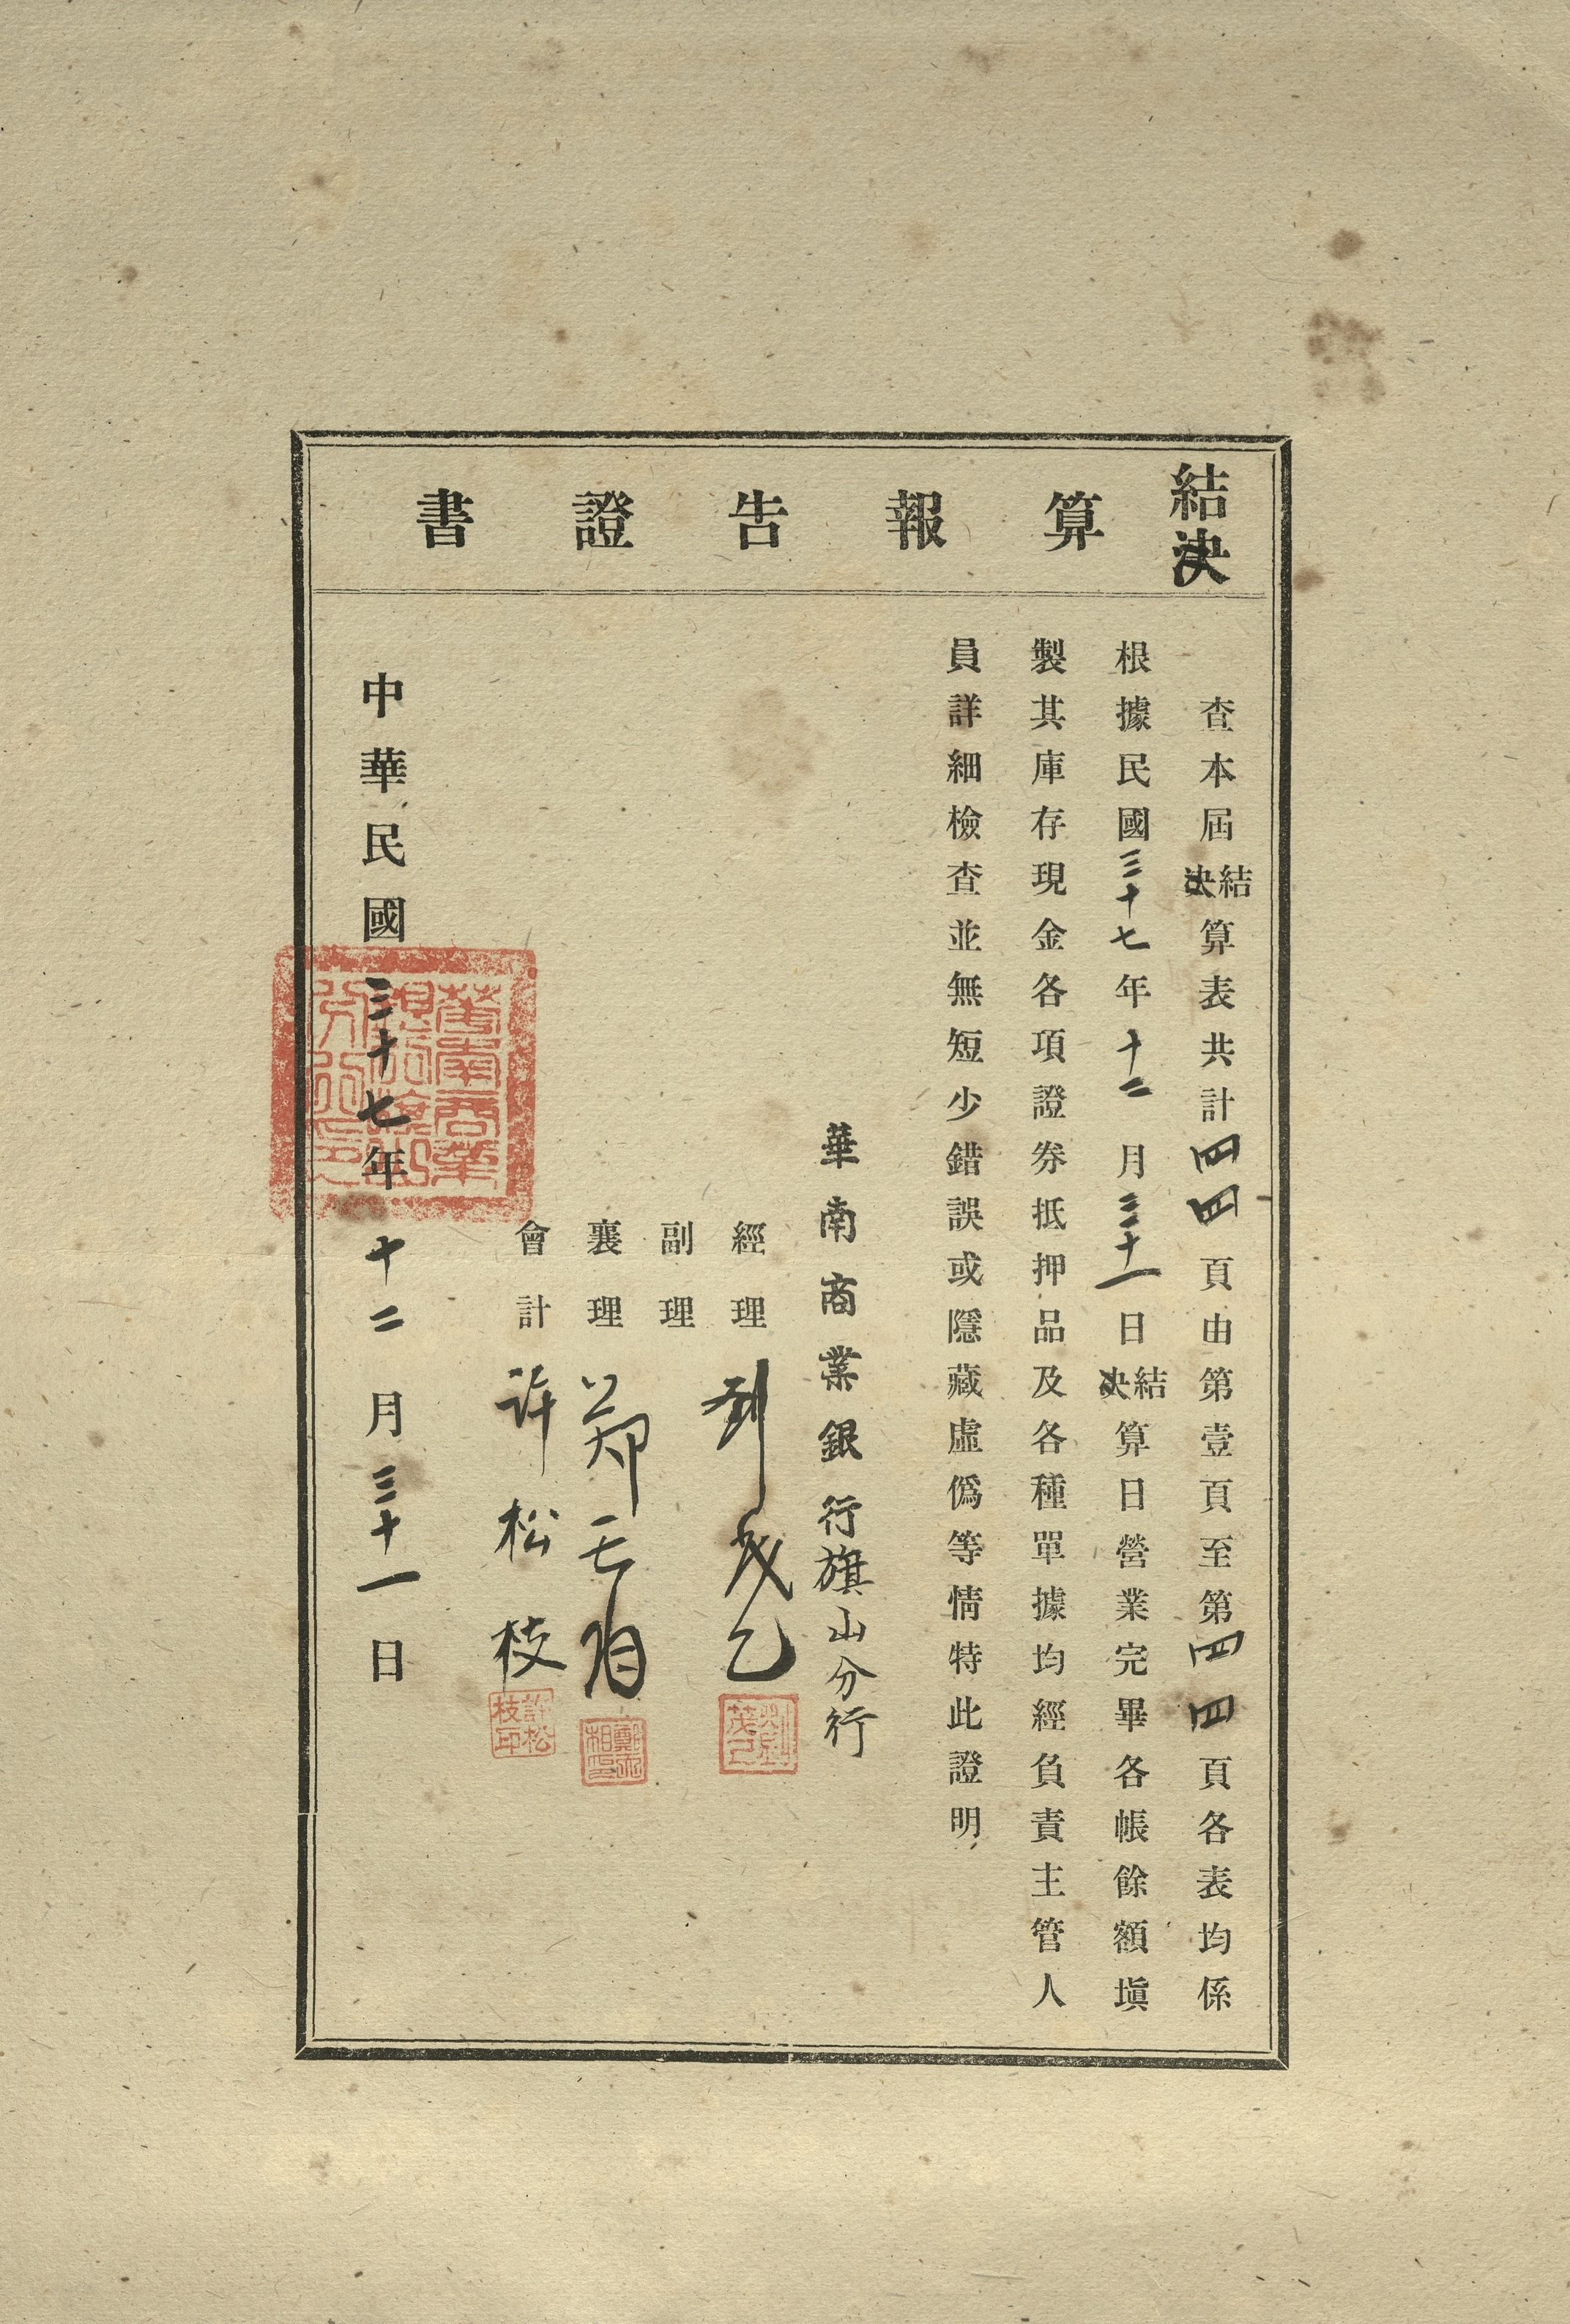 結決算報告證書
查本屆結決算表共計四四頁由第壹頁至第四四頁各表均係
根據民國三十七年十二月三十一日結決算日營業完畢各帳餘額塡
製其庫存現金各項證券抵押品及各種單據均經負責主管人
員詳細檢查並無短少錯誤或隱藏虛僞等情特此證明
華南商業銀行旗山分行
經理 劉茂己
副理
襄理 鄭天相
會計 許松枝
劉茂己
許松枝印
中華民國三十七年十二月三十一日